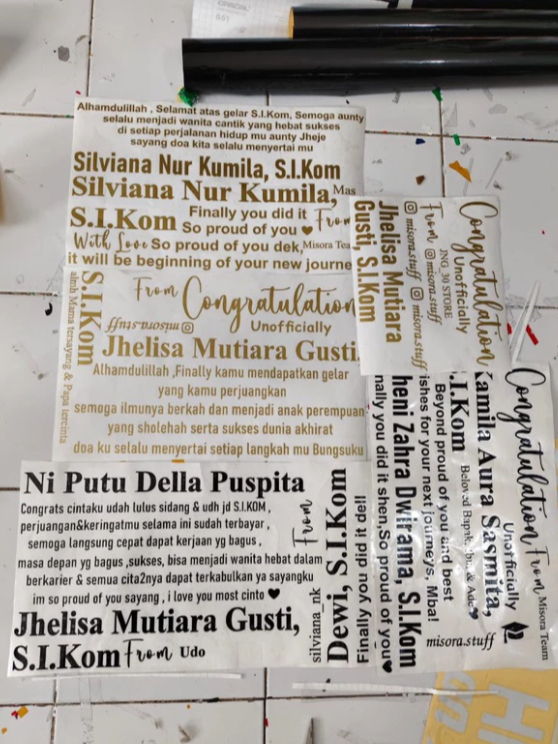 Alhamdulillah , Selamat atas gelar S.I.Kom, Semoga aunty
selalu menjadi wanita cantik yang hebat sukses
di setiap perjalanan hidup mu aunty Jheje
sayang doa kita selalu menyertai mu
Silviana Nur Kumila, S.I.Kom
Silviana Nur Kumila, Mas
S.I.Kom Finally you did it From
So proud of you ♥
With Love So proud of you dek, Misora Tea
it will be beginning of your new journe
S.I.Kom
Mama tersayang & Papa tercinta
From Congratulation
@misora.stuff
Unofficially
Jhelisa Mutiara Gusti
Alhamdulillah ,Finally kamu mendapatkan gelar
yang kamu perjuangkan
semoga ilmunya berkah dan menjadi anak perempuan
yang sholehah serta sukses dunia akhirat
doa ku selalu menyertai setiap langkah mu Bungsuku
Congratulation
Unofficially
JNG_36 STORE
From @misora.stuff
@misora.stuff @misora.stuff
Jhelisa Mutiara
Gusti, S.I.Kom
Congratulation From Misora Team
Unofficially
Kamila Aura Sasmita,
.I.Kom Beloved Bapak, Ibu, & Ade♥
Beyond proud of you and best
ishes for your next journeys, Mba!
heni Zahra Dwitama, S.I.Kom
nally you did it shen,So proud of you♥
misora.stuff
Ni Putu Della Puspita
Congrats cintaku udah lulus sidang & udh jd S.I.KOM ,
perjuangan&keringatmu selama ini sudah terbayar ,
semoga langsung cepat dapat kerjaan yg bagus ,
masa depan yg bagus ,sukses, bisa menjadi wanita hebat dalam
berkarier & semua cita2nya dapat terkabulkan ya sayangku
im so proud of you sayang , i love you most cinto ♥
Jhelisa Mutiara Gusti,
S.I.Kom From Udo
From
silviana_nk
Dewi, S.I.Kom
Finally you did it del!